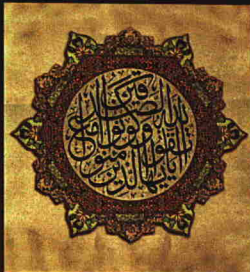 يا أيها الذين آمنوا اتقوا الله وكونوا مع الصادقين